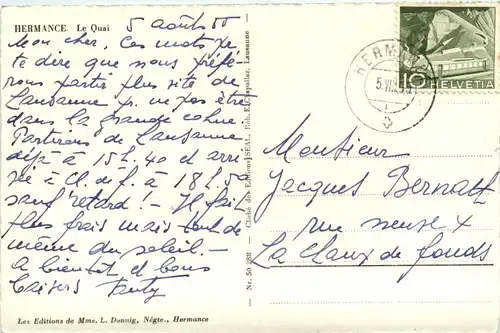 HERMANCE. Le Quai
5 août 50
Mon cher, Ces mots pr
te dire que nous préfé-
rons partir plus vite de
Lausanne pr. ne pas être
dans la grande cohue.
Partirons de Lausanne
déjà à 15 h. 40 et arri-
vée à Ch. d. f. à 18 h. 50
sauf retard! – Il fait
plus frais mais tout de
même du soleil. –
A bientôt et bons
baisers
Les Editions de Mme. L. Dennig, Négte., Hermance
Nr. 50 288 — Cliché des Editions SEAL, Rob. E. Chapallaz, Lausanne
HERMANCE
10 HELVETIA
Monsieur
Jacques Bernath
rue neuve
La Chaux de fonds